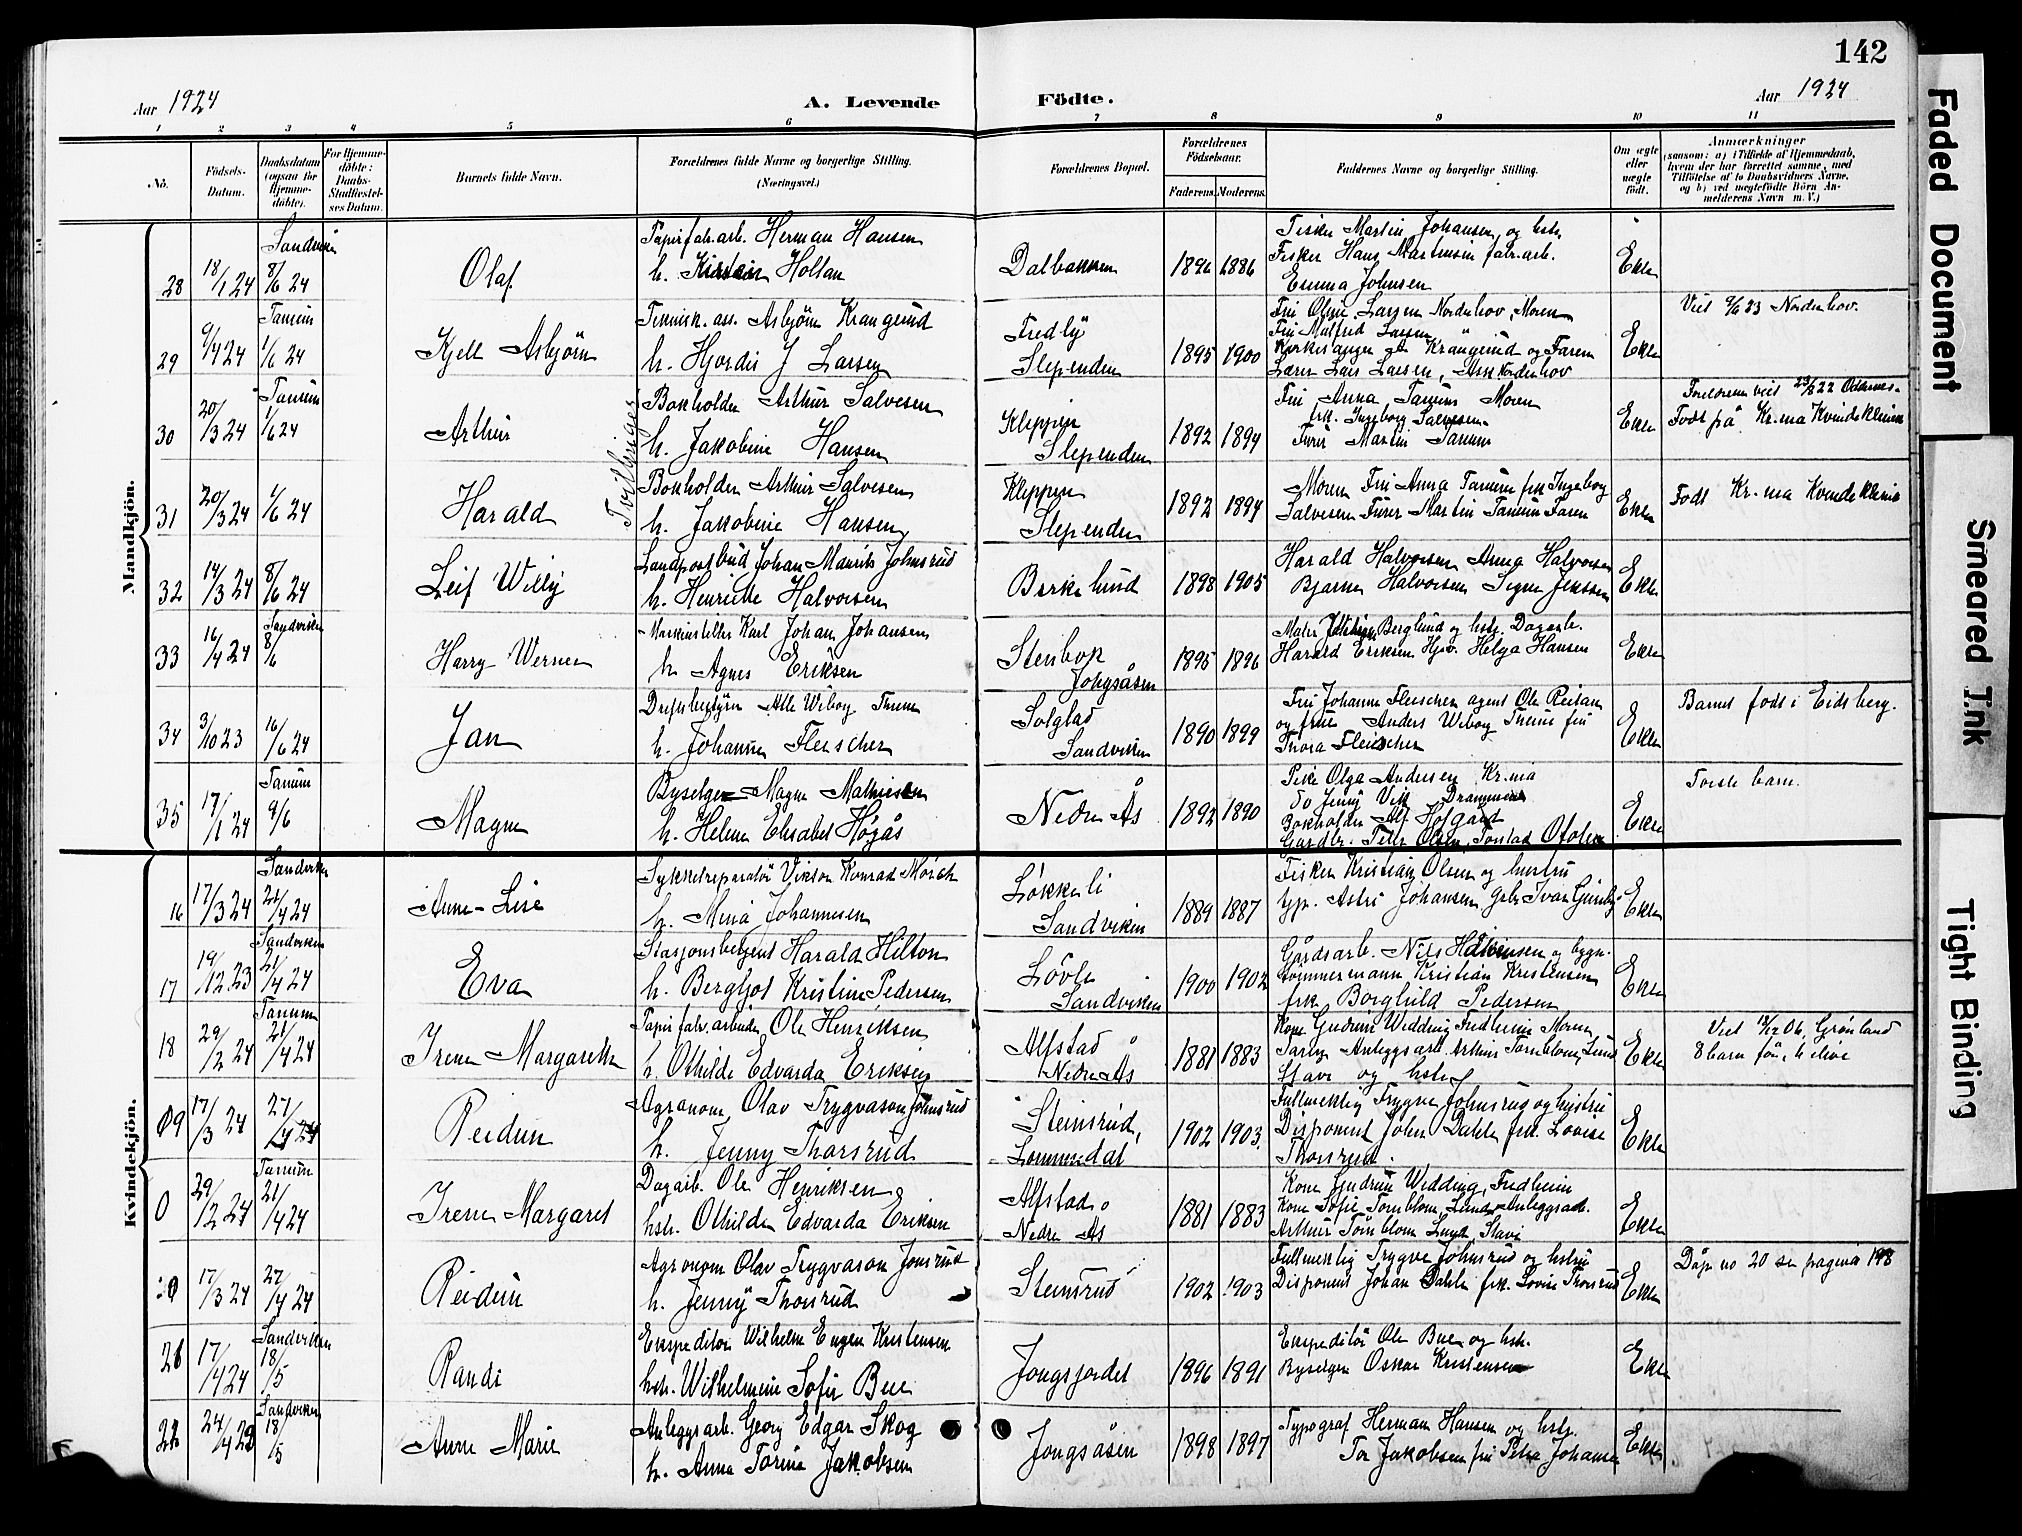 142
Aar 1924
A. Levende
Födte.
Aar 1924
1 2 3 4 5 6 7 8 8 9 10 11
No.
Födsels-
Datum.
Daabsdatum
(ogsaa for
Hjemme-
döbte).
For Hjemme-
döbte:
Daabs-
Stadfæstel-
ses Datum.
Barnets fulde Navn.
Forældrenes fulde Navne og borgerlige Stilling.
(Næringsvei.)
Forældrenes Bopæl.
Forældrenes
Födselsaar.
Faderens. Moderens.
Faddernes Navne og borgerlige Stilling.
Om ægte
eller
uægte
födt.
Anmærkninger
(saasom: a) i Tilfælde af Hjemmedaab,
hvem der har forrettet samme, med
Tilföielse af to Daabsvidners Navne,
og b) ved uægtefödte Börn An-
melderens Navn m. V.)
Mandkjön.
28 18/1 24 Sandvika 8/6 24 Olaf
Papirfabr.arb. Herman Hansen
h. Kirstin Holtan
Dalbakken 1896 1886
Fisker Martin Johansen og hstr.
Fisker Hans Martinsin fabr.arb.
Emma Johnsen
Ekte
29 9/4 24 Tanum 1/6 24 Kjell Asbjörn
Teknisk. ass. Asbjörn Krangsrud
h. Hjordis J Larsen
Fredly
Slependen 1895 1900
Fru Olga Larsen Norderhov, Moren
Fru Malfred Larsen
Kirkesanger Krangsrud og Faren
Lærer Lars Larsen, Ask Norderhov
Ekte
Viet 9/6 23 Norderhov.
30 20/3 24 Tanum 1/6 24 Arthur
Tvillinger
Bokholder Arthur Salvesen
h. Jakobine Hansen
Kleppen
Slependen 1892 1894
Fru Anna Tanum Moren
frk. Ingeborg Salvesen
Furer Martin Tanum
Ekte
Foreldrene viet 23/8 22
Född på Kr.nia Kvindeklinik
31 20/3 24 1/6 24 Harald
Bokholder Arthur Salvesen
h. Jakobine Hansen
Kleppen
Slependen 1892 1894
Moren Fru Anna Tanum frk Ingeborg
Salvesen Furer Martin Tanum Faren
Ekte
Födt Kr.nia Kvindeklinik
32 14/3 24 8/6 24 Leif Willy
Landpostbud Johan Mauritz Johnsrud
h. Henriette Halvorsen
Berkelund 1898 1905
Harald Halvorsen Anna Halvorsen
Bjarne Halvorsen Signe Jenssen
Ekte
33 16/4 24 Sandviken 8/6 Harry Werner
Maskinstiller Karl Johan Johansen
h. Agnes Eriksen
Stenbok
Jongsåsen 1895 1896
Maler Berglund og hstr. Dagarb.
Harald Eriksen Hjov. Helga Hansen
Ekte
34 3/10 23 16/6 24 Jan
Driftsbestyrer Atle Wiborg Thune
h. Johanne Fleischer
Solglad
Sandviken 1890 1899
Fru Johanne Fleischer agent Ole Reitan
og frue Anders Wiborg Thune fru
Thora Fleischer
Ekte
Barnet födt i Eidsberg.
35 17/1 24 Tanum 9/6 Magne
Byselger Magne Mathiesen
h. Helene Elisabet Högås
Nedre Ås 1892 1890
Pike Olga Andersen Kr.nia
Do Jenny Vik Drammen
Bokholder Alf Hofgård
Gårdbr. Peder Olsen, Tonstad
Ekte
Förste barn.
Kvindekjön.
16 17/3 24 Sandviken 21/4 24 Anne-Lise
Sykkelreparatör Viktor Konrad Mörch
h. Mina Johannesen
Lökkeli
Sandviken 1889 1887
Fisker Kristian Olsen og hustru
typ. Astri Johansen
Ekte
17 19/12 23 Sandviken 21/4 24 Eva
Stasjonsbetjent Harald Hilton
h. Bergljot Kristine Pedersen
Lövli
Sandviken 1900 1902
Gårdsarb. Nils Halvorsen og bygn.
tömmermann Kristian Kristensen
frk Borghild Pedersen
Ekte
18 29/2 24 Tanum 21/4 24 Irene Margarethe
Papirfabr.arbeider Ole Henriksen
h. Othilde Edvarda Eriksen
Alfstad
Nedre Ås 1881 1883
Kone Gudrun Wedding Fredheim Moren
Anleggsarb. Arthur Tornblom, Lund
Stavi og hstr
Ekte
Viet 18/12 06, Grönland
8 barn för, 6 elive
09 17/3 24 27/4 24 Reidun
Agronom Olav Trygvason Johnsrud
h. Jenny Thorsrud
Steinsrud,
Lommedal 1902 1903
Fullmektig Trygve Johnsrud og hustru
Disponent Johan Dahle frk. Lovise
Thorsrud.
Ekte
0 29/2 24 Tanum 21/4 24 Irene Margaret
Dagarb. Ole Henriksen
hstr. Othilde Edvarda Eriksen
Alfstad
Nedre Ås 1881 1883
Kone Gudrun Wedding, Fredheim
Kone Sofie Tornblom, Lund Anleggsarb.
Arthur Tornblom Lund, Stavi
Ekte
20 17/3 24 27/4 24 Reidun
Agronom Olav Trygvason Jonsrud
h. Jenny Thorsrud
Steinsrud 1902 1903
Fullmektig Trygve Johnsrud og hstru
Disponent Johan Dahle frk. Lovise Thorsrud
Ekte
Dåp no 20 se pagina 148
21 17/4 24 Sandviken 18/5 Randi
Ekspeditör Wilhelm Eugen Kristensen
hstr. Wilhelmine Sofie Bue
Jongsjordet 1896 1891
Ekspeditör Ole Bue og hstr.
Byselger Oskar Kristensen
Ekte
22 24/4 23 Sandviken 18/5 Anne Marie
Anleggsarb. Georg Edgar Skog
h. Anna Torine Jakobsen
Jongsåsen 1898 1897
Typograf Herman Hansen og hstr.
Tor Jakobsen fru Petra Johansen
Ekte
Faded Document
Smeared Ink
Tight Binding